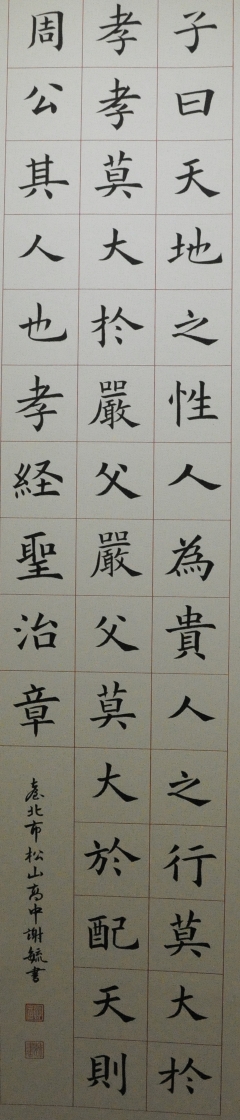 子曰天地之性人為貴人之行莫大於
孝孝莫大於嚴父嚴父莫大於配天則
周公其人也孝経聖治章
臺北市松山高中謝毓書